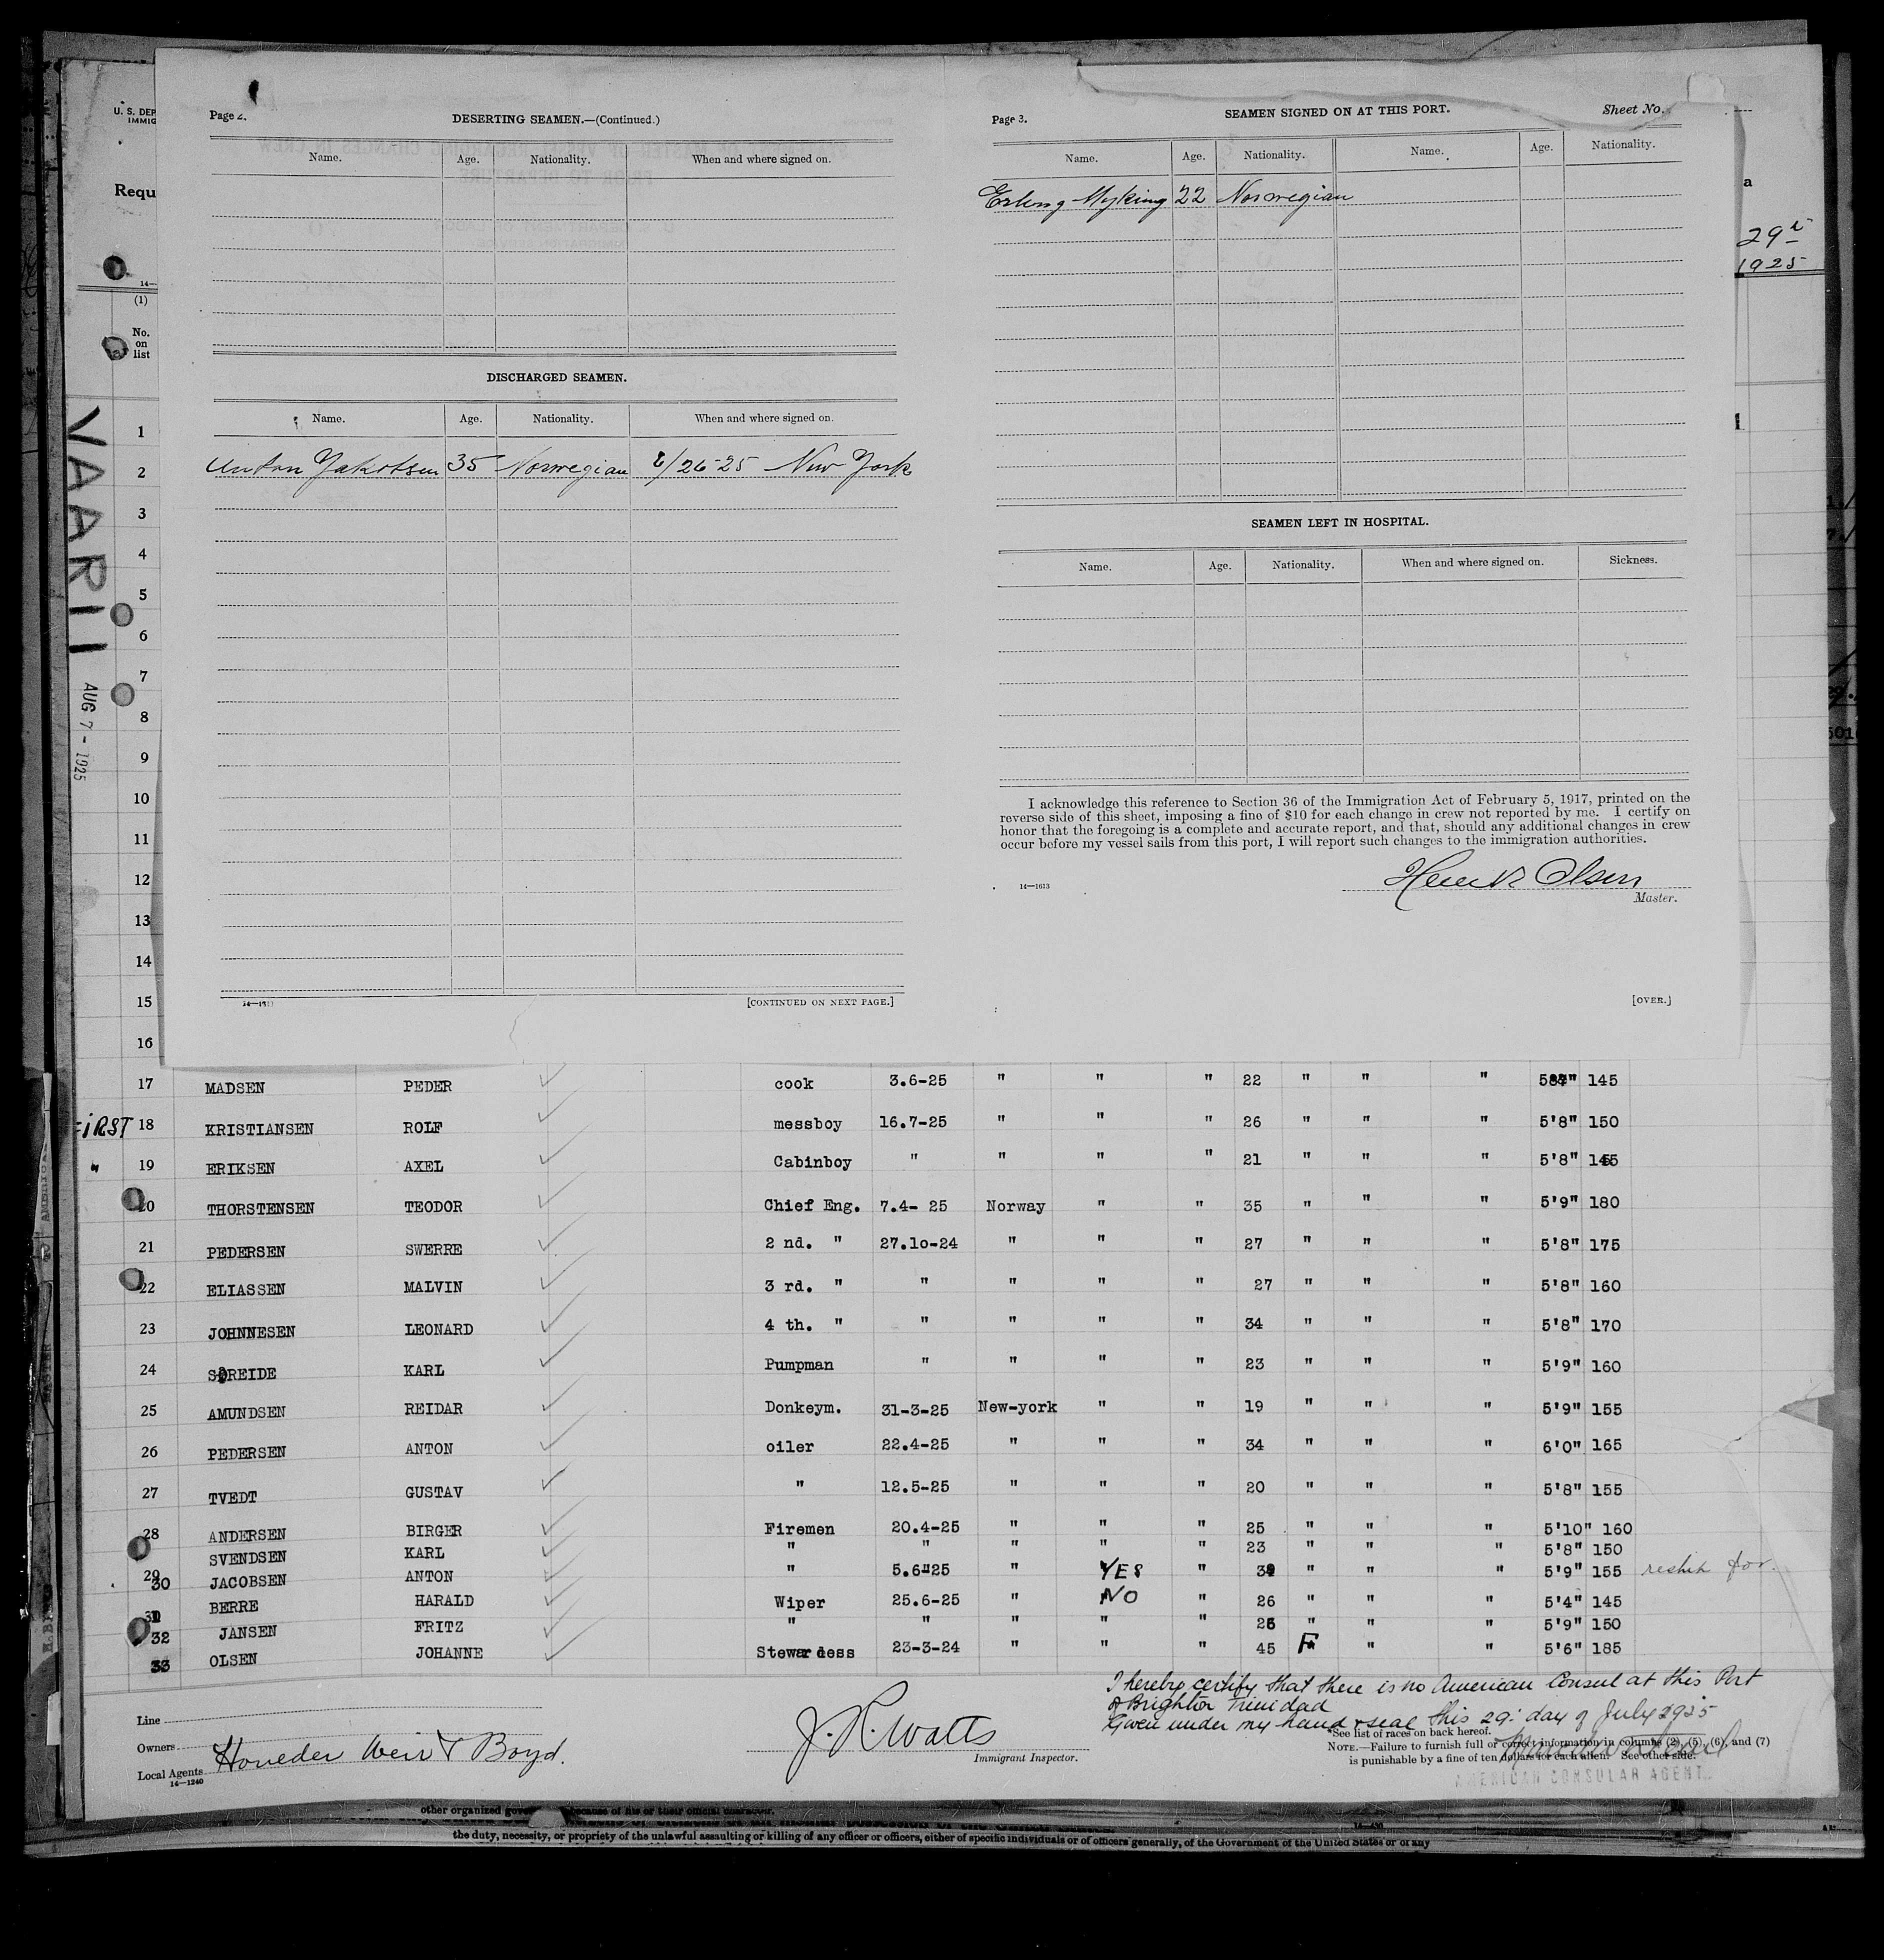 U. S. DEP
IMMIG
Requ
14—
(1)
No.
on
list
VAARII
AUG 7 - 1925
Page 2.
DESERTING SEAMEN.—(Continued.)
Name. Age. Nationality. When and where signed on.
DISCHARGED SEAMEN.
Name. Age. Nationality. When and where signed on.
Anton Yakobsen 35 Norwegian 6/26-25 New York
[CONTINUED ON NEXT PAGE.]
Page 3.
SEAMEN SIGNED ON AT THIS PORT.
Sheet No.
Name. Age. Nationality. Name. Age. Nationality.
Erling Myking 22 Norwegian
SEAMEN LEFT IN HOSPITAL.
Name. Age. Nationality. When and where signed on. Sickness.
I acknowledge this reference to Section 36 of the Immigration Act of February 5, 1917, printed on the
reverse side of this sheet, imposing a fine of $10 for each change in crew not reported by me. I certify on
honor that the foregoing is a complete and accurate report, and that, should any additional changes in crew
occur before my vessel sails from this port, I will report such changes to the immigration authorities.
14—1613
Henrik Olsen
Master.
[OVER.]
a
29th
1925
1
2
3
4
5
6
7
8
9
10
11
12
13
14
15
16
17 MADSEN PEDER cook 3.6-25 " " " 22 " " " 145
FIRST 18 KRISTIANSEN ROLF messboy 16.7-25 " " " 26 " " " 5'8" 150
" 19 ERIKSEN AXEL Cabinboy " " " " 21 " " " 5'8" 145
20 THORSTENSEN TEODOR Chief Eng. 7.4- 25 Norway " " 35 " " " 5'9" 180
21 PEDERSEN SWERRE 2 nd. " 27.10-24 " " " 27 " " " 5'8" 175
22 ELIASSEN MALVIN 3 rd. " " " " " 27 " " " 5'8" 160
23 JOHNNESEN LEONARD 4 th. " " " " " 34 " " " 5'8" 170
24 SØREIDE KARL Pumpman " " " " 23 " " " 5'9" 160
25 AMUNDSEN REIDAR Donkeym. 31-3-25 New-york " " 19 " " " 5'9" 155
26 PEDERSEN ANTON oiler 22.4-25 " " " 34 " " " 6'0" 165
27 TVEDT GUSTAV " 12.5-25 " " " 20 " " " 5'8" 155
28 ANDERSEN BIRGER Firemen 20.4-25 " " " 25 " " " 5'10" 160
29 SVENDSEN KARL " " " " " 23 " " " 5'8" 150
30 JACOBSEN ANTON " 5.6-25 " YES " " " " 5'9" 155
31 BERRE HARALD Wiper 25.6-25 " NO " 26 " " " 5'4" 145
32 JANSEN FRITZ " " " " " 26 " " " 5'9" 150
33 OLSEN JOHANNE Stewardess 23-3-24 " " " 45 F " " 5'6" 185
I hereby certify that there is no American Consul at this Port
of Brighton Trinidad
Given under my hand & seal this 29. day of July 1925
Line
Owners
Local Agents
14—1240
Weir & Boyd.
J. R. Watts
Immigrant Inspector.
*See list of races on back hereof.
NOTE.—Failure to furnish full or correct information in columns (2), (5), (6), and (7)
is punishable by a fine of ten dollars for each alien. See other side.
AMERICAN CONSULAR AGENT
other organized because of his or their official character.
the duty, necessity, or propriety of the unlawful assaulting or killing of any officer or officers, either of specific individuals or of officers generally, of the Government of the United States or of any